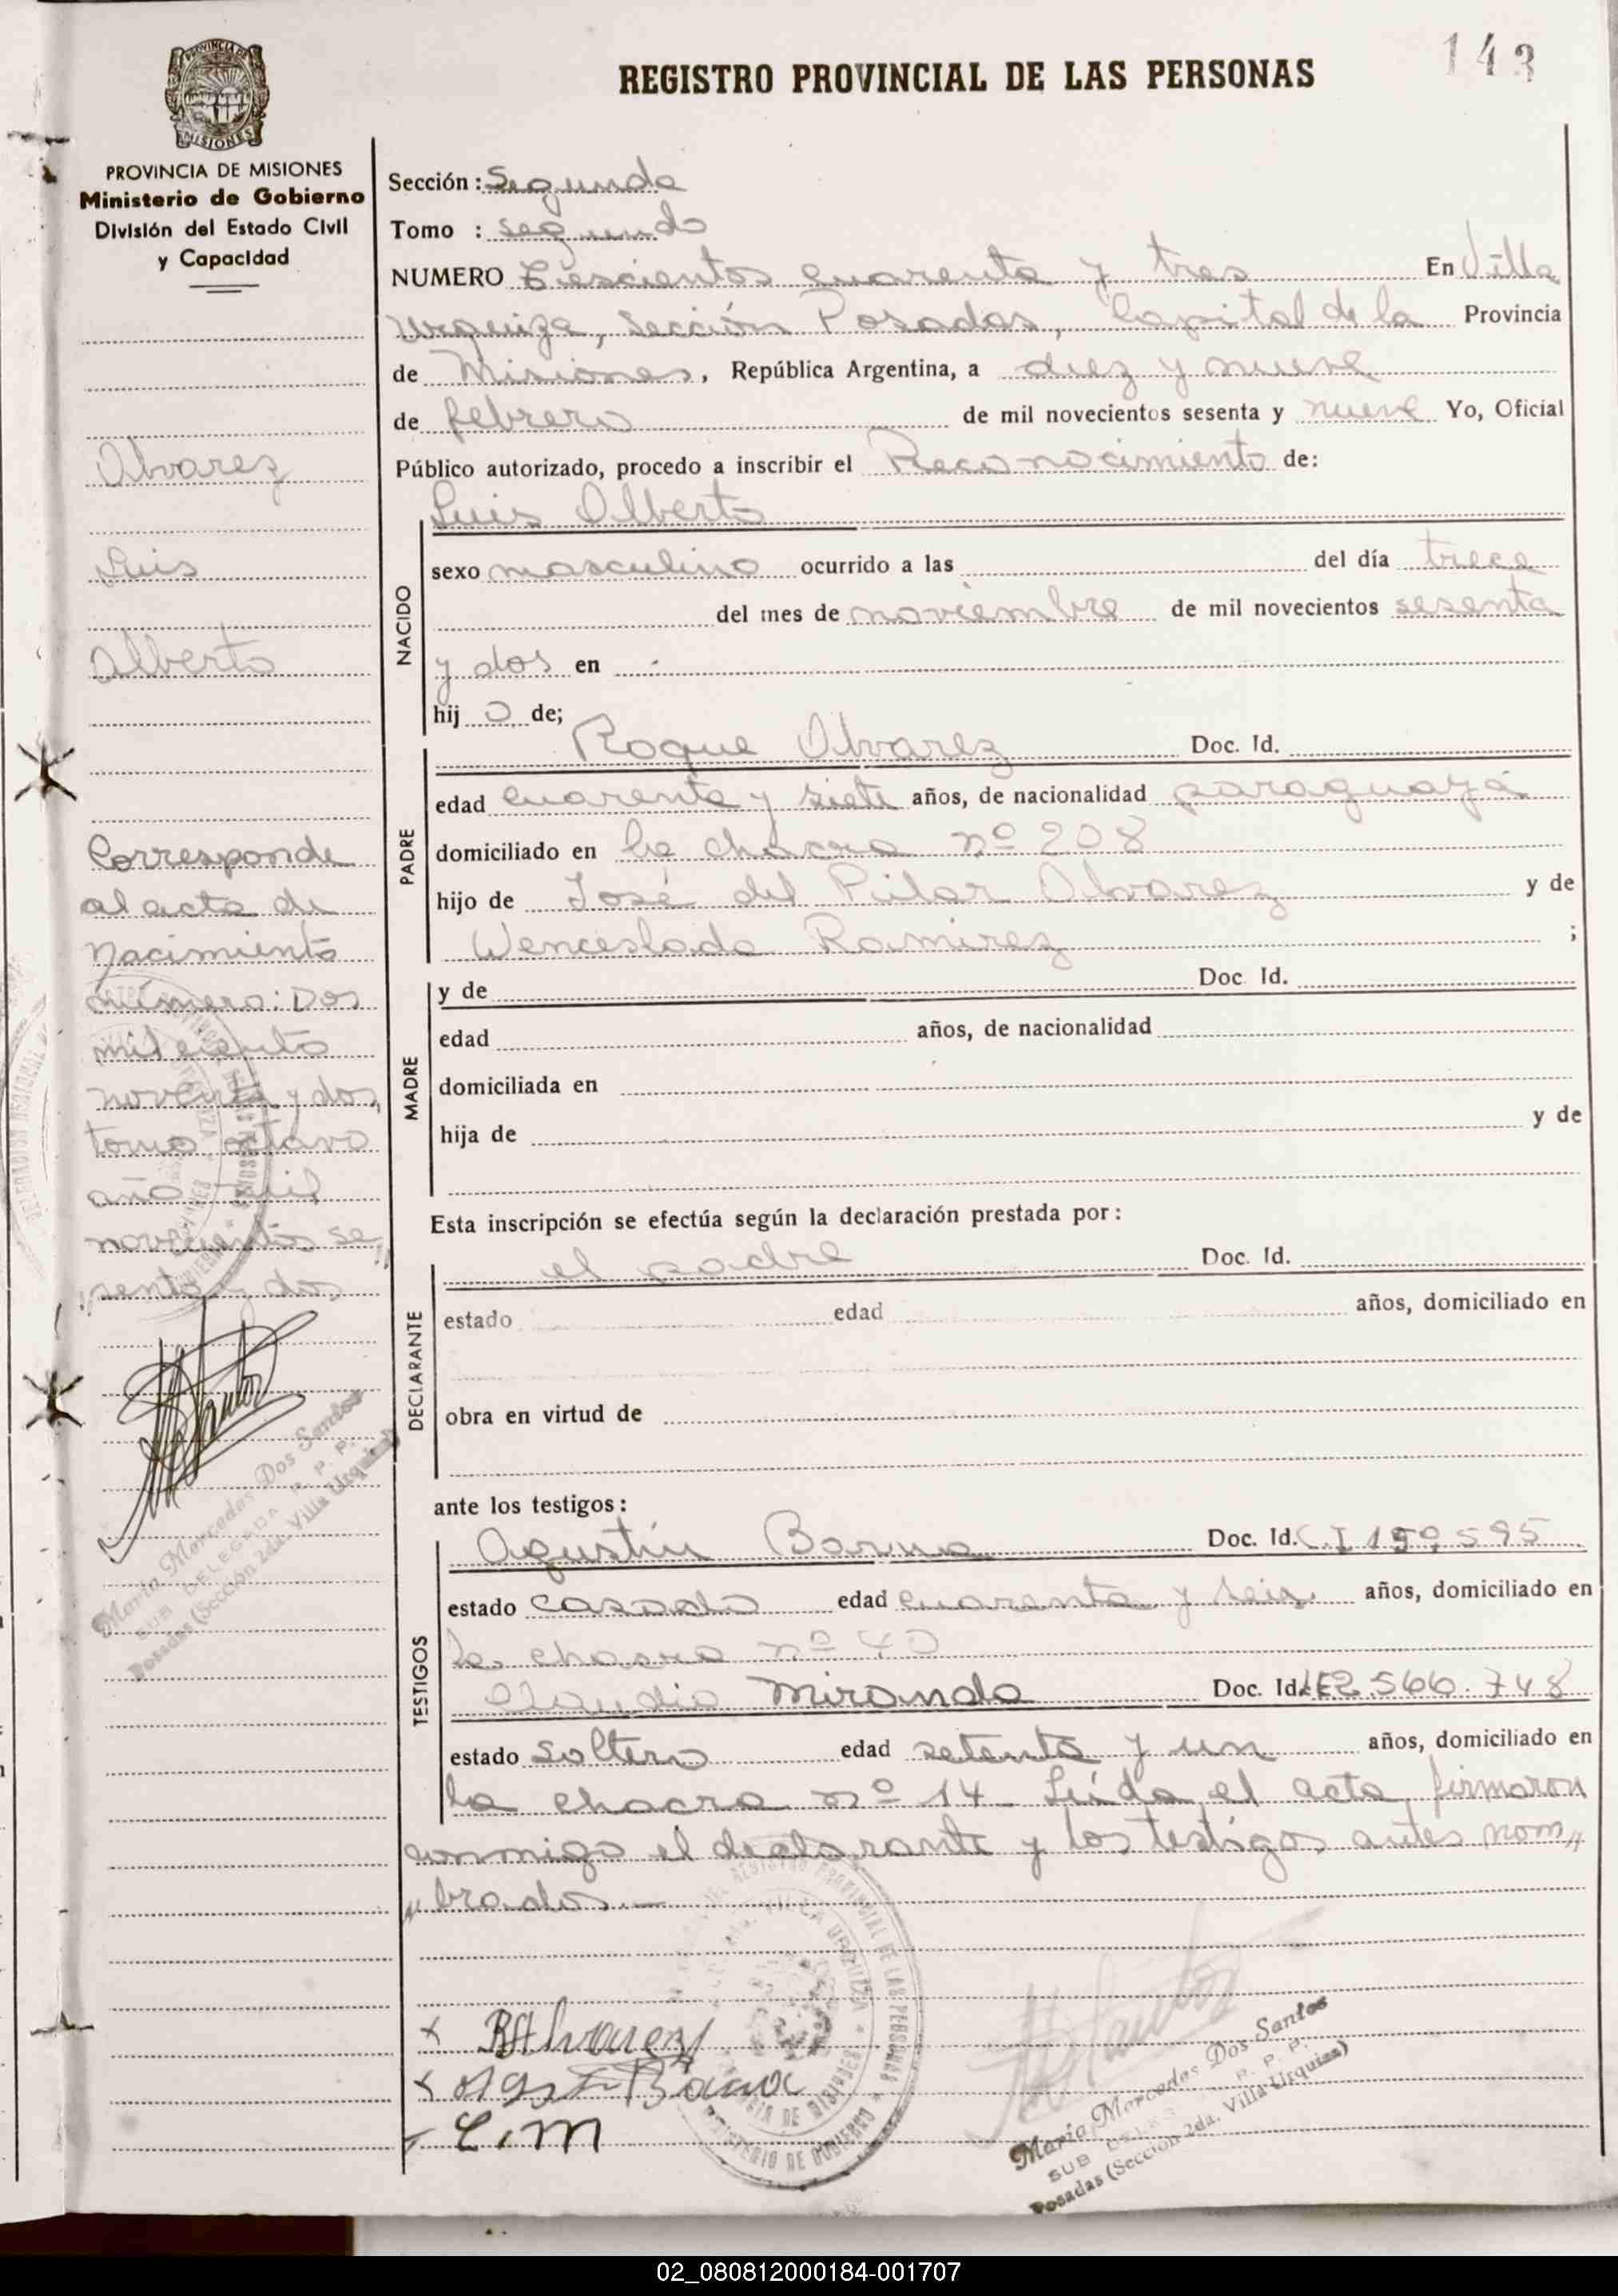 143
REGISTRO PROVINCIAL DE LAS PERSONAS
PROVINCIA DE MISIONES
PROVINCIA DE MISIONES
Ministerio de Gobierno
División del Estado Civil
y Capacidad
Alvarez
Luis
Alberto
Corresponde
al acta de
Nacimiento
número: Dos
mil ciento
noventa y dos,
tomo octavo
año mil
novecientos se,,
senta y dos
María Mercedes Dos Santos
SUB DELEGADA R. P. P.
Posadas (Sección 2da. Villa Urquiza)
Sección: Segunda
Tomo : segundo
NUMERO Trescientos cuarenta y tres En Villa
Urquiza, Sección Posadas, Capital de la Provincia
de Misiones, República Argentina, a diez y nueve
de febrero de mil novecientos sesenta y nueve Yo, Oficial
Público autorizado, procedo a inscribir el Reconocimiento de:
Luis Alberto
NACIDO
sexo masculino ocurrido a las del día trece
del mes de noviembre de mil novecientos sesenta
y dos en
hij o de;
PADRE
Roque Alvarez Doc. Id.
edad cuarenta y siete años, de nacionalidad paraguaya
domiciliado en la chacra nº 208
hijo de José del Pilar Alvarez y de
Wenceslada Ramirez ;
MADRE
y de Doc. Id.
edad años, de nacionalidad
domiciliada en
hija de y de
Esta inscripción se efectúa según la declaración prestada por:
DECLARANTE
el padre Doc. Id.
estado edad años, domiciliado en
obra en virtud de
ante los testigos:
TESTIGOS
Agustín Doc. Id. C.I 595
estado casado edad cuarenta y seis años, domiciliado en
la chacra nº 40
Claudio Miranda Doc. Id. LE 2.566.748
estado soltero edad setenta y un años, domiciliado en
la chacra nº 14 - Leída el acta, firmaron
conmigo el declarante y los testigos antes nom,,
,,brados.-
x RAlvarez
x
- C.M
REGISTRO PROVINCIAL DE LAS PERSONAS
VILLA URQUIZA
MINISTERIO DE GOBIERNO
María Mercedes Dos Santos
SUB DELEGADA R. P. P.
Posadas (Sección 2da. Villa Urquiza)
02_080812000184-001707